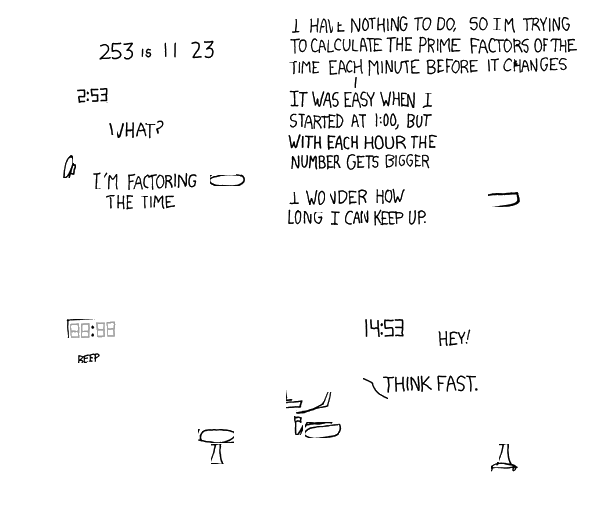 253 IS 11 23
2:53
WHAT?
I'M FACTORING
THE TIME
I HAVE NOTHING TO DO, SO I'M TRYING
TO CALCULATE THE PRIME FACTORS OF THE
TIME EACH MINUTE BEFORE IT CHANGES
IT WAS EASY WHEN I
STARTED AT 1:00, BUT
WITH EACH HOUR THE
NUMBER GETS BIGGER
I WONDER HOW
LONG I CAN KEEP UP.
BEEP
14:53
HEY!
THINK FAST.